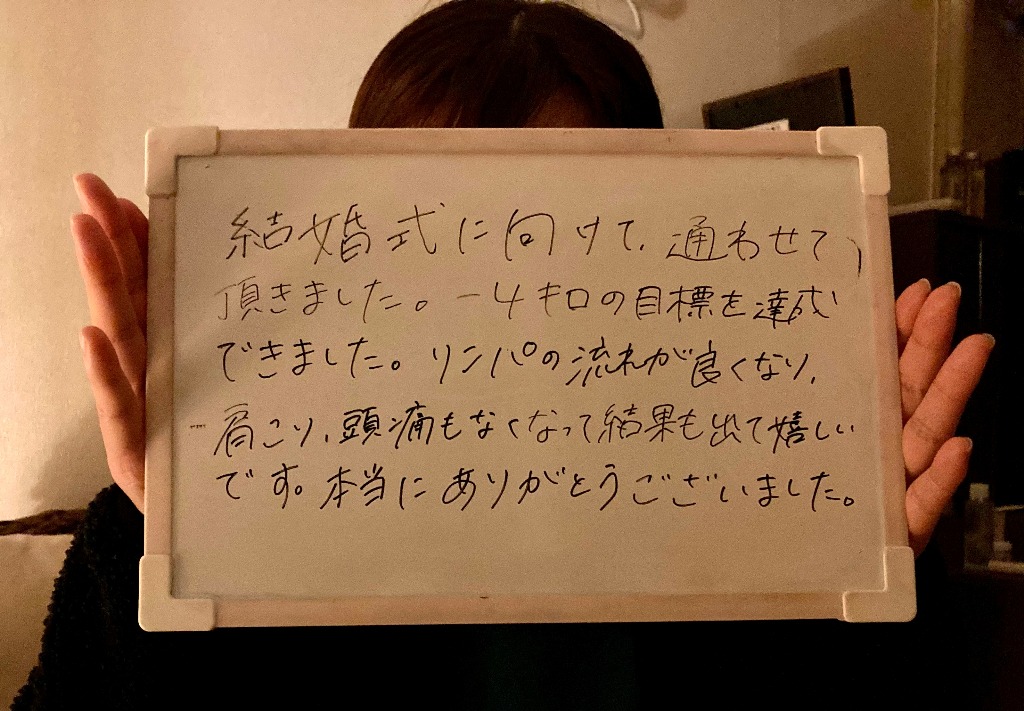 結婚式に向けて、通わせて
頂きました。-4キロの目標を達成
できました。リンパの流れが良くなり、
肩こり、頭痛もなくなって結果も出て嬉しい
です。本当にありがとうございました。